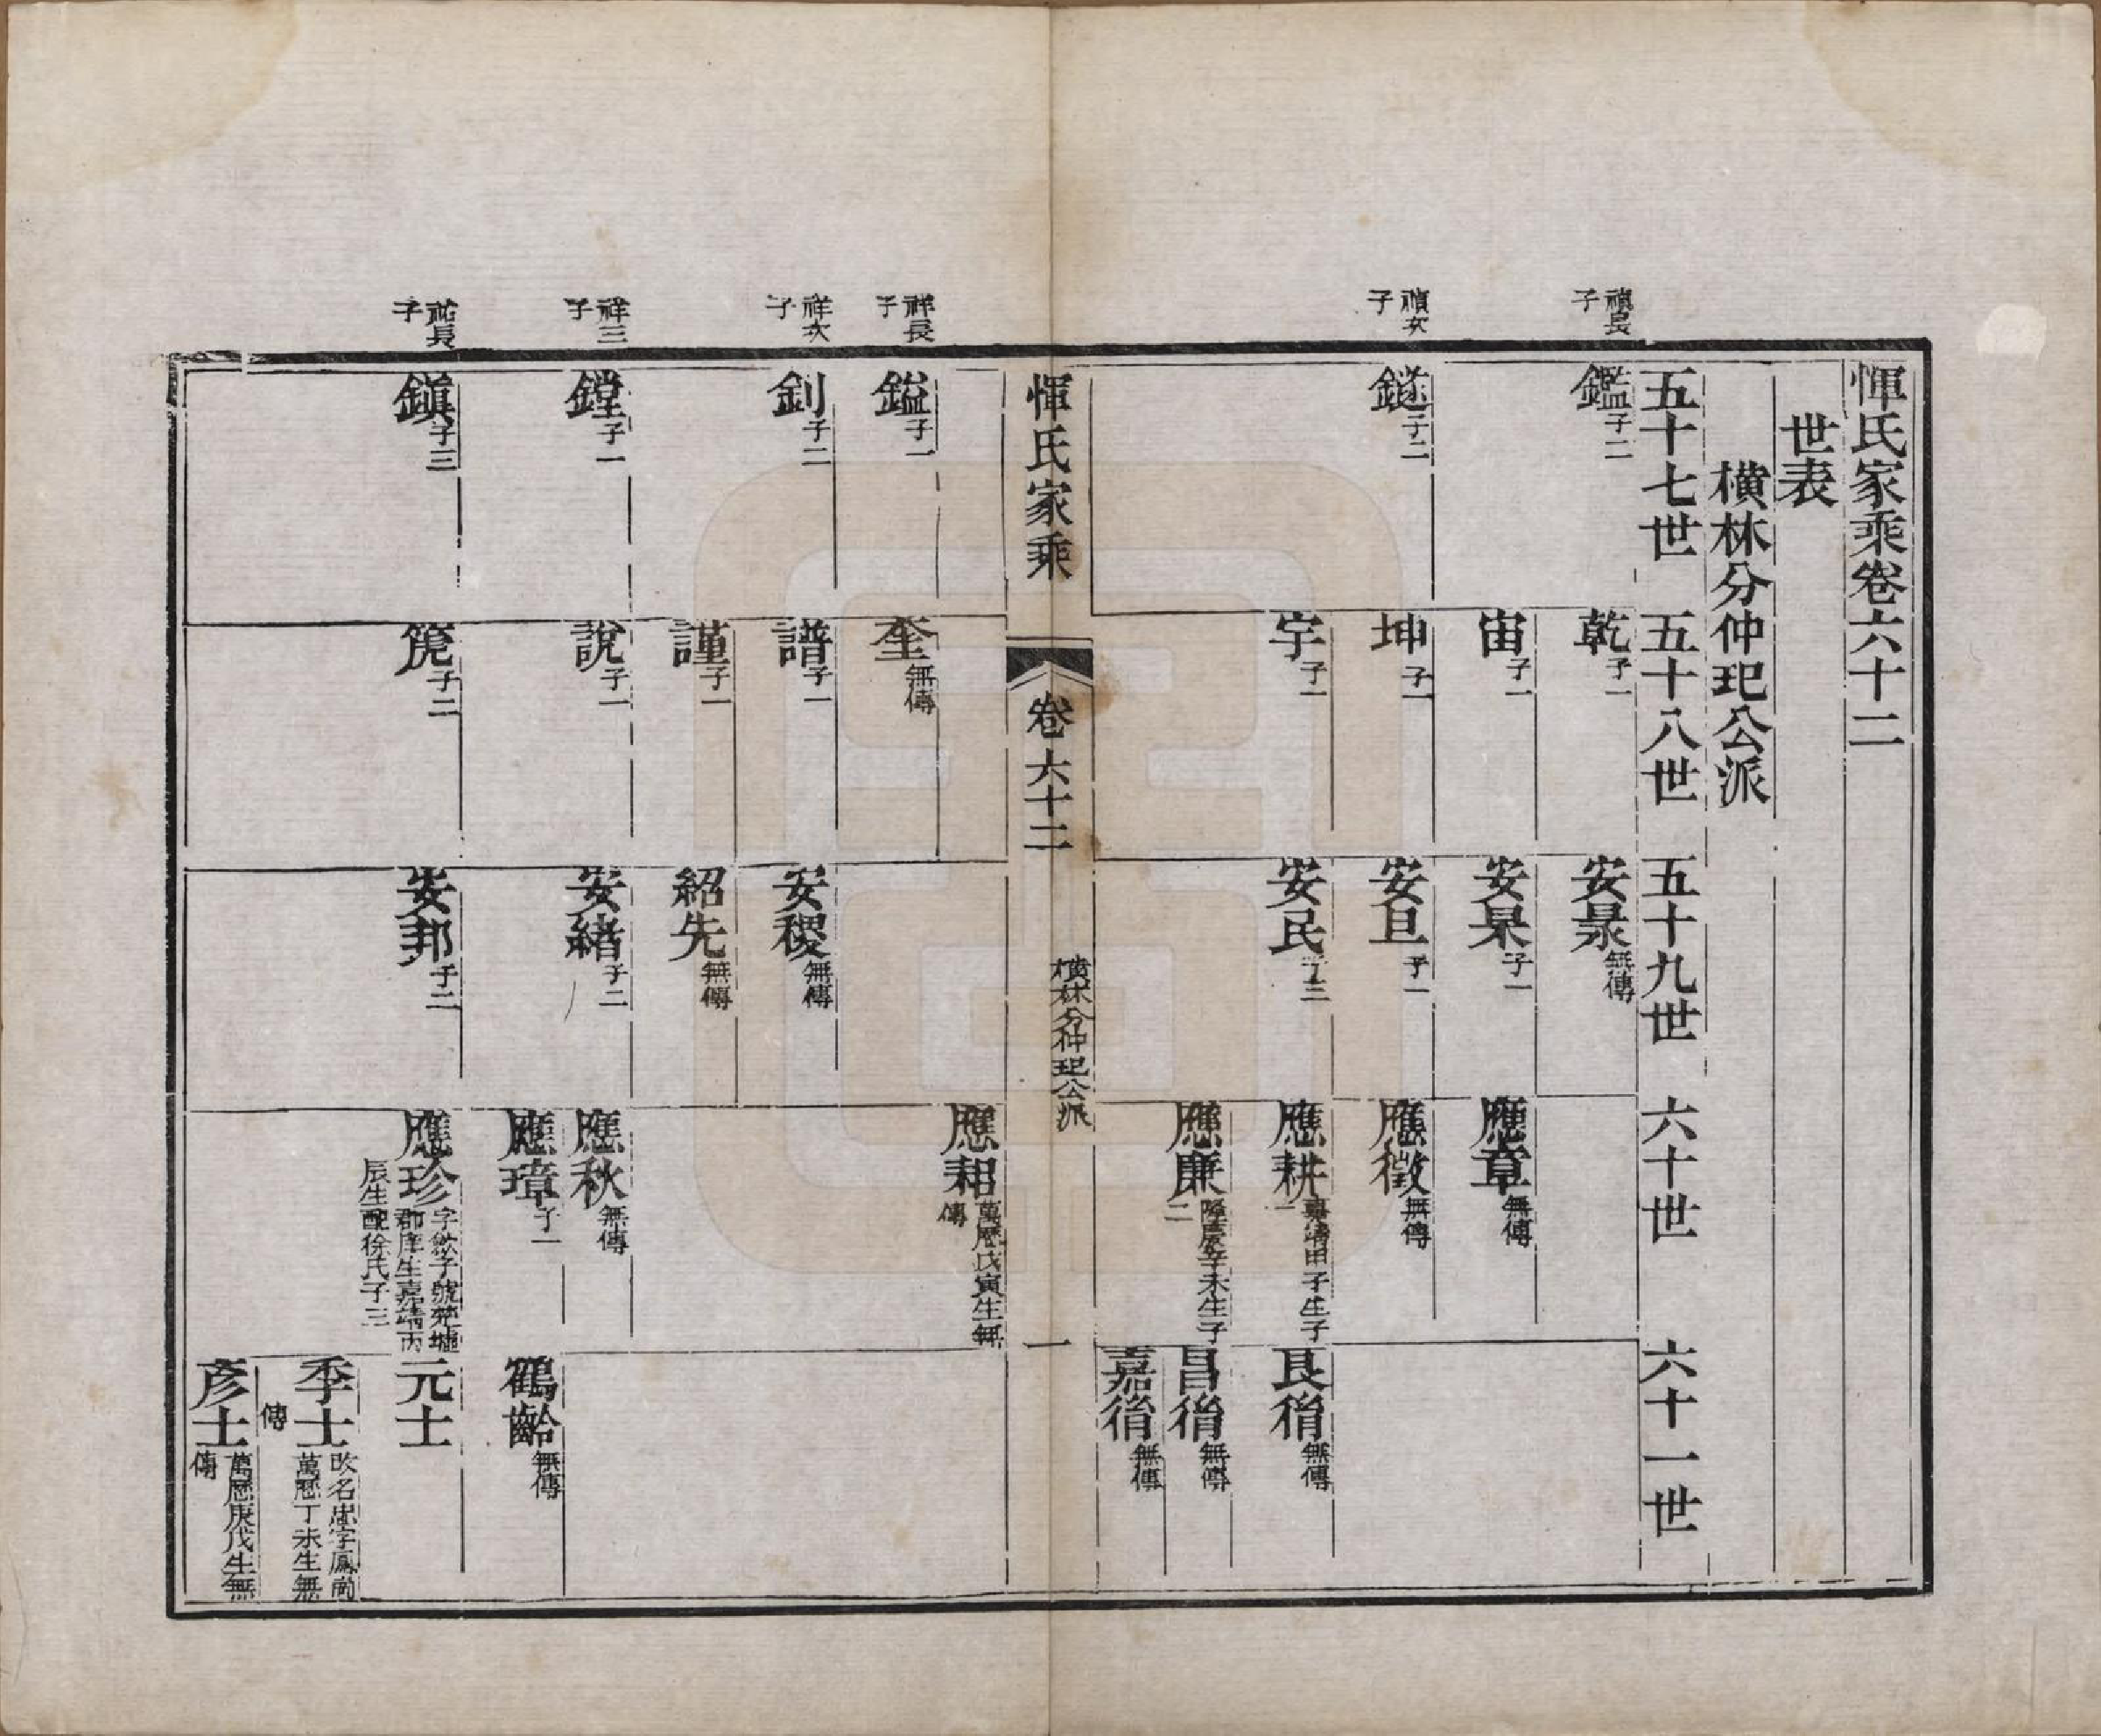 惲氏家乘卷六十二
世表
橫林分仲玘公派
五十七世
五十八世
五十九世
六十世
六十一世
禎長子
鑑子二
乾子一
安㬎無傳
宙子一
安杲子一
應章無傳
禎次子
鐩子二
坤子一
安旦子一
應徵無傳
宇子一
安民子三
應耕嘉靖甲子生子一
良胤無傳
應廉隆慶辛未生子二
昌胤無傳
嘉胤無傳
惲氏家乘
卷六十二
橫林分仲玘公派
一
應耜萬歷戊寅生無傳
祥長子
鎰子一
奎無傳
祥次子
釗子二
譜子一
安稷無傳
謹子一
紹先無傳
祥三子
鏜子一
說子一
安緒子二
應秋無傳
應璋子一
鶴齡無傳
祐長子
鎮子三
箎子二
安邦子二
應珍字歛子號楚墟郡庠生嘉靖丙辰生配徐氏子三
元士
季士改名忠字鳳尚萬歷丁未生無傳
彥士萬歷庚戌生無傳